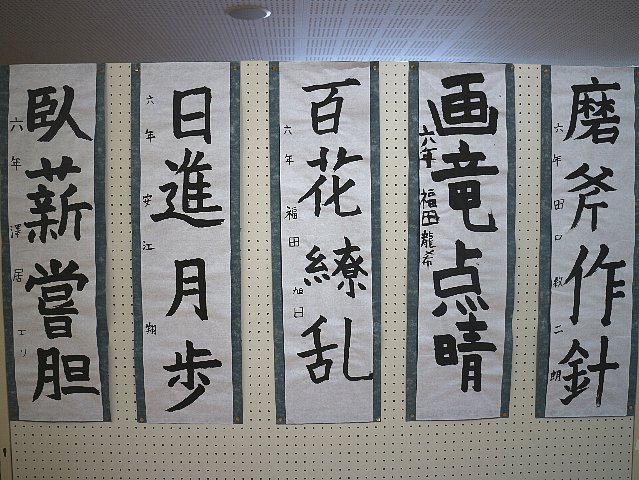 磨斧作針
六年 田口
画竜点晴
六年 福田龍希
百花繚乱
六年 福田旭日
日進月歩
六年 安江翔
臥薪嘗胆
六年 澤居エリ